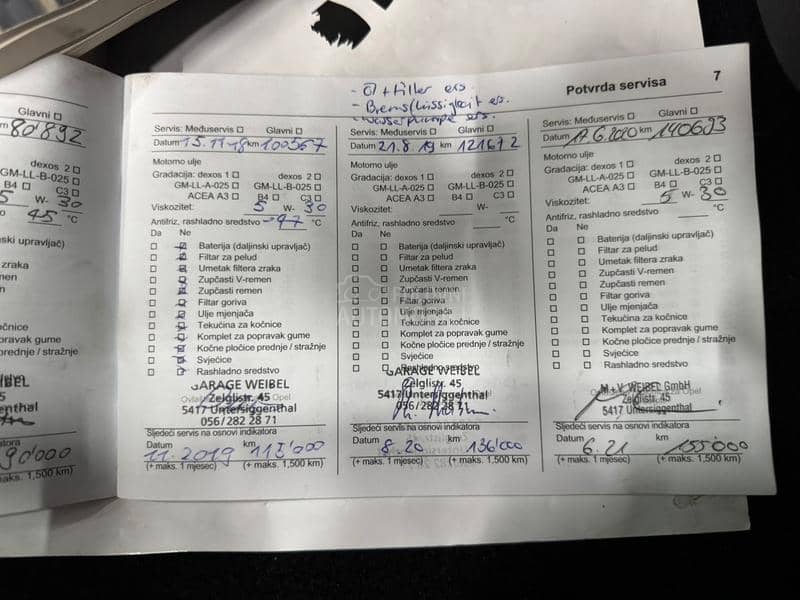 - Öl + Filter ers.
- Bremsflüssigkeit ers.
- Wasserpumpe ers.
Potvrda servisa
7
Glavni
80'892
dexos 2
GM-LL-B-025
B4 C3
5 W- 30
45 °C
nski upravljač)
zraka
men
n
očnice
pravak gume
prednje / stražnje
WEIBEL
45
enthal
90'000
maks. 1,500 km)
Servis: Međuservis Glavni
Datum 15.11.18 km 100367
Motorno ulje
Gradacija: dexos 1 dexos 2
GM-LL-A-025 GM-LL-B-025
ACEA A3 B4 C3
Viskozitet: 5 W- 30
Antifriz, rashladno sredstvo -47 °C
Da Ne
Baterija (daljinski upravljač)
Filtar za pelud
Umetak filtera zraka
Zupčasti V-remen
Zupčasti remen
Filtar goriva
Ulje mjenjača
Tekućina za kočnice
Komplet za popravak gume
Kočne pločice prednje / stražnje
Svjećice
Rashladno sredstvo
GARAGE WEIBEL
Zelglistr. 45
5417 Untersiggenthal
056/282 28 71
Sljedeći servis na osnovi indikatora
Datum km
11.2019 115'000
(+ maks. 1 mjesec) (+ maks. 1,500 km)
Servis: Međuservis Glavni
Datum 21.8.19 km 121672
Motorno ulje
Gradacija: dexos 1 dexos 2
GM-LL-A-025 GM-LL-B-025
ACEA A3 B4 C3
Viskozitet: W-
Antifriz, rashladno sredstvo °C
Da Ne
Baterija (daljinski upravljač)
Filtar za pelud
Umetak filtera zraka
Zupčasti V-remen
Zupčasti remen
Filtar goriva
Ulje mjenjača
Tekućina za kočnice
Komplet za popravak gume
Kočne pločice prednje / stražnje
Svjećice
Rashladno sredstvo
GARAGE WEIBEL
Zelglistr. 45
5417 Untersiggenthal
056/282 28 71
Sljedeći servis na osnovi indikatora
Datum km
8.20 136'000
(+ maks. 1 mjesec) (+ maks. 1,500 km)
Servis: Međuservis Glavni
Datum 17.6.2020 km 140693
Motorno ulje
Gradacija: dexos 1 dexos 2
GM-LL-A-025 GM-LL-B-025
ACEA A3 B4 C3
Viskozitet: 5 W- 30
Antifriz, rashladno sredstvo °C
Da Ne
Baterija (daljinski upravljač)
Filtar za pelud
Umetak filtera zraka
Zupčasti V-remen
Zupčasti remen
Filtar goriva
Ulje mjenjača
Tekućina za kočnice
Komplet za popravak gume
Kočne pločice prednje / stražnje
Svjećice
Rashladno sredstvo
M + V WEIBEL GmbH
Zelglistr. 45
5417 Untersiggenthal
Sljedeći servis na osnovi indikatora
Datum km
6.21 155'000
(+ maks. 1 mjesec) (+ maks. 1,500 km)